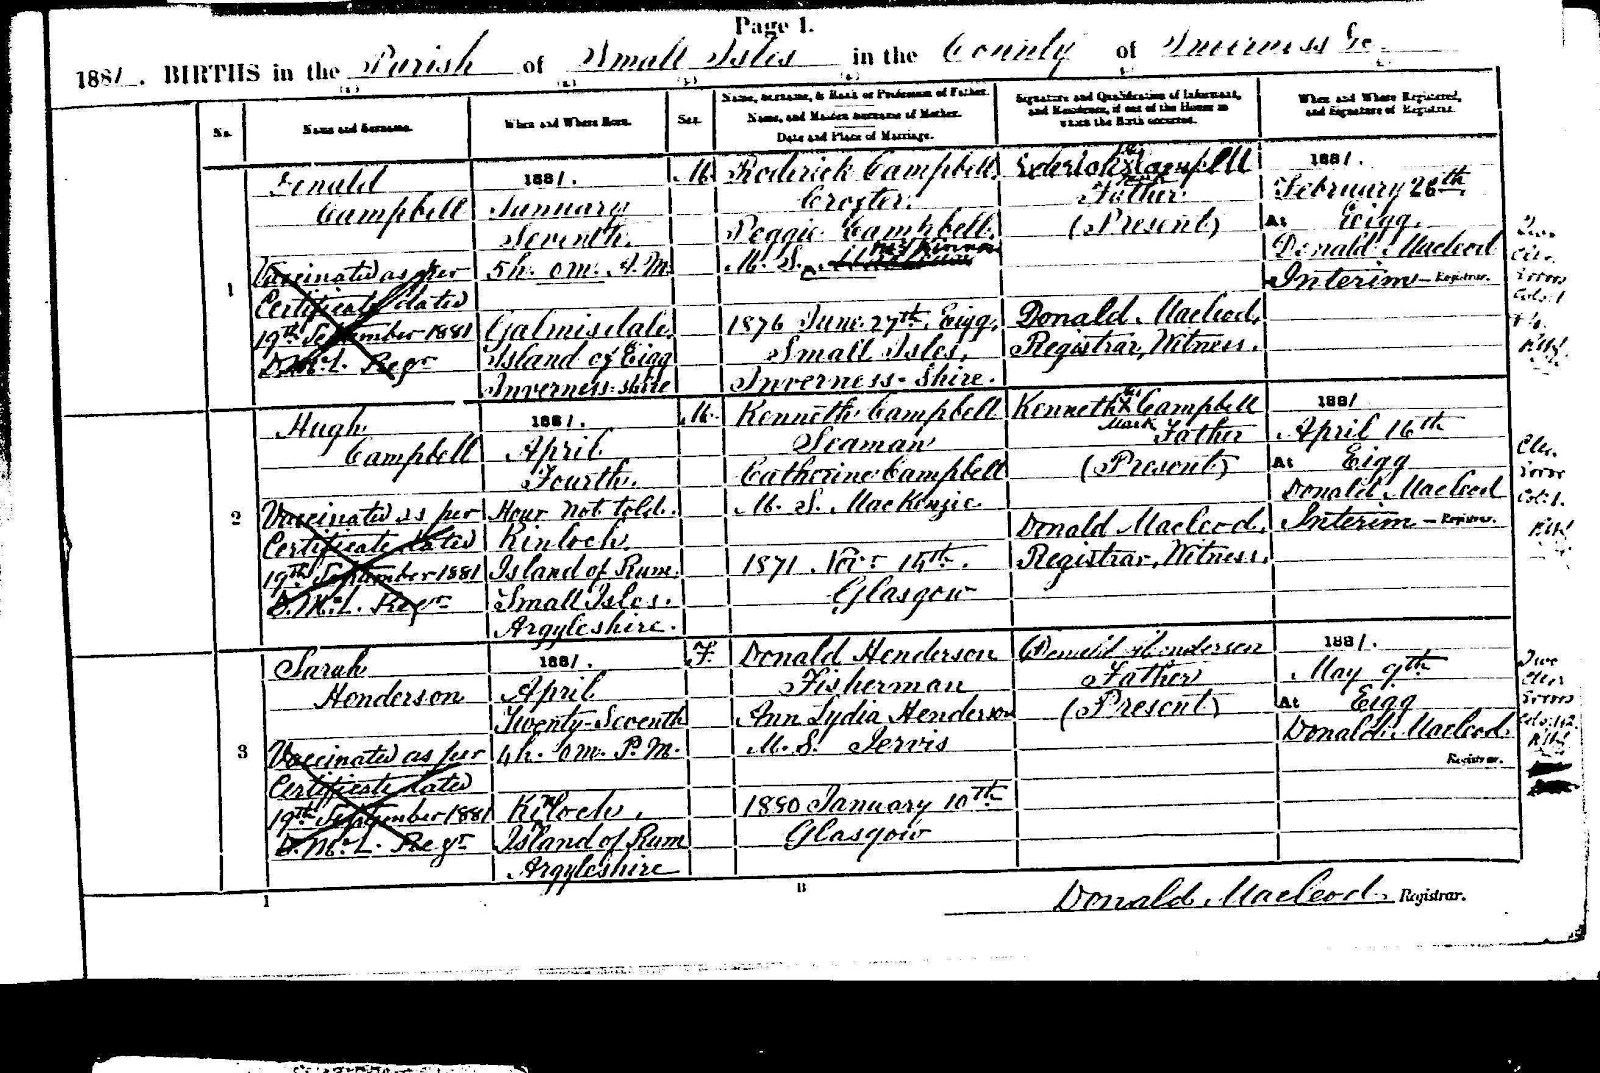 Page 1.
1881. BIRTHS in the Parish of Small Isles in the County of Inverness &c.
No. Name and Surname. When and Where Born. Sex. Name, Surname, & Rank or Profession of Father. Name, and Maiden Surname of Mother. Date and Place of Marriage. Signature and Qualification of Informant, and Residence, if out of the House in which the Birth occurred. When and Where Registered, and Signature of Registrar.
1
Campbell
Vaccinated as per
Certificate dated
19th September 1881
D. McL. Regr
1881.
January
Seventh.
5h. 0m. A.M.
Galmisdale
Island of Eigg
Inverness-shire
M.
Roderick Campbell
Crofter.
Peggie Campbell.
M. S. McKinnon
1876 June 27th. Eigg,
Small Isles,
Inverness-Shire.
Campbell
Father
(Present)
Donald Macleod,
Registrar, Witness.
1881.
February 26th
At Eigg.
Donald Macleod
Interim - Registrar.
2
Hugh
Campbell
Vaccinated as per
Certificate dated
19th September 1881
D. McL. Regr
1881.
April
Fourth.
Hour not told.
Kinloch.
Island of Rum.
Small Isles.
Argyleshire.
M.
Kenneth Campbell
Seaman
Catherine Campbell
M. S. MacKenzie
1871 Novr 15th.
Glasgow
Kenneth X Campbell
Mark
Father
(Present)
Donald Macleod,
Registrar, Witness.
1881
April 16th
At Eigg
Donald Macleod
Interim - Registrar.
3
Sarah
Henderson
Vaccinated as per
Certificate dated
19th September 1881
D. McL. Regr
1881.
April
Twenty-Seventh
4h. 0m. P.M.
Kinloch,
Island of Rum
Argyleshire
F.
Donald Henderson
Fisherman
Ann Lydia Henderson
M. S. Jervis
1880 January 10th
Glasgow
Donald Henderson
Father
(Present)
1881.
May 9th
At Eigg
Donald Macleod.
Registrar.
1
B
Donald Macleod. Registrar.